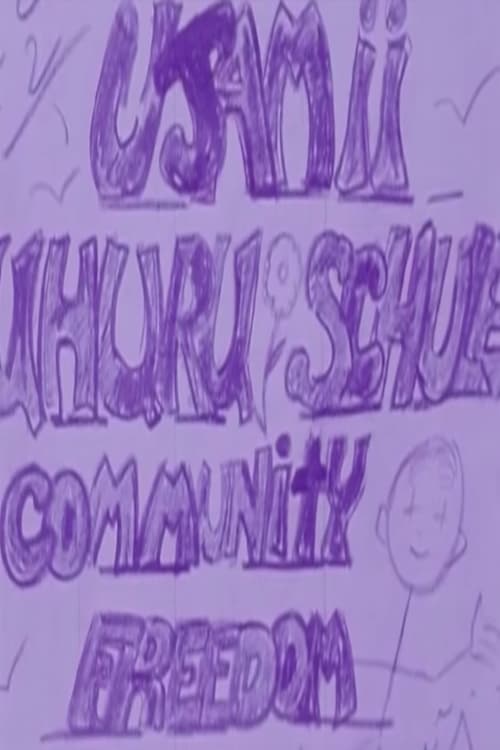 USAMii
UHURU SCHULE
COMMUNiTY
FREEDOM